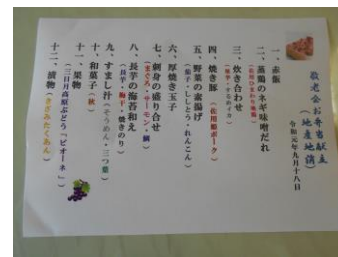 敬老会お弁当献立
(地産地消)
令和元年九月十八日
一、赤飯
二、蒸鶏のネギ味噌だれ
三、炊き合わせ
四、焼き豚(佐用姫ポーク)
五、野菜の素揚げ
(茄子・ししとう・れんこん)
六、厚焼き玉子
七、刺身の盛り合せ
(まぐろ・サーモン・鯛)
八、長芋の海苔和え
(長芋・梅干・焼きのり)
九、すまし汁(そうめん・三つ葉)
十、和菓子(秋)
十一、果物
(三日月高原ぶどう「ピオーネ」)
十二、漬物(きざみたくあん)